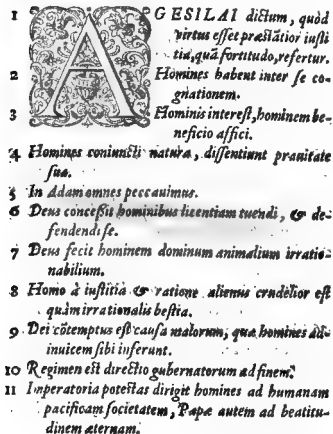 1 AGESILAI dictum, quòd
virtus esset præstãtior iusti
tia, quã fortitudo, refertur.
2 Homines habent inter se co-
gnationem.
3 Hominis interest, hominem be-
neficio affici.
4 Homines coniuncti natura, dissentiunt prauitate
sua.
5 In Adam omnes peccauimus.
6 Deus concessit hominibus licentiam tuendi, & de-
fendendi se.
7 Deus fecit hominem dominum animalium irratio-
nabilium.
8 Homo à iustitia & ratione alienus crudelior est
quàm irrationalis bestia.
9 Dei cõtemptus est causa malorum, quæ homines ad-
inuicem sibi inferunt.
10 Regimen est directio gubernatorum ad finem.
11 Imperatoria potestas dirigit homines ad humanam
pacificam societatem, Papæ autem ad beatitu-
dinem æternam.